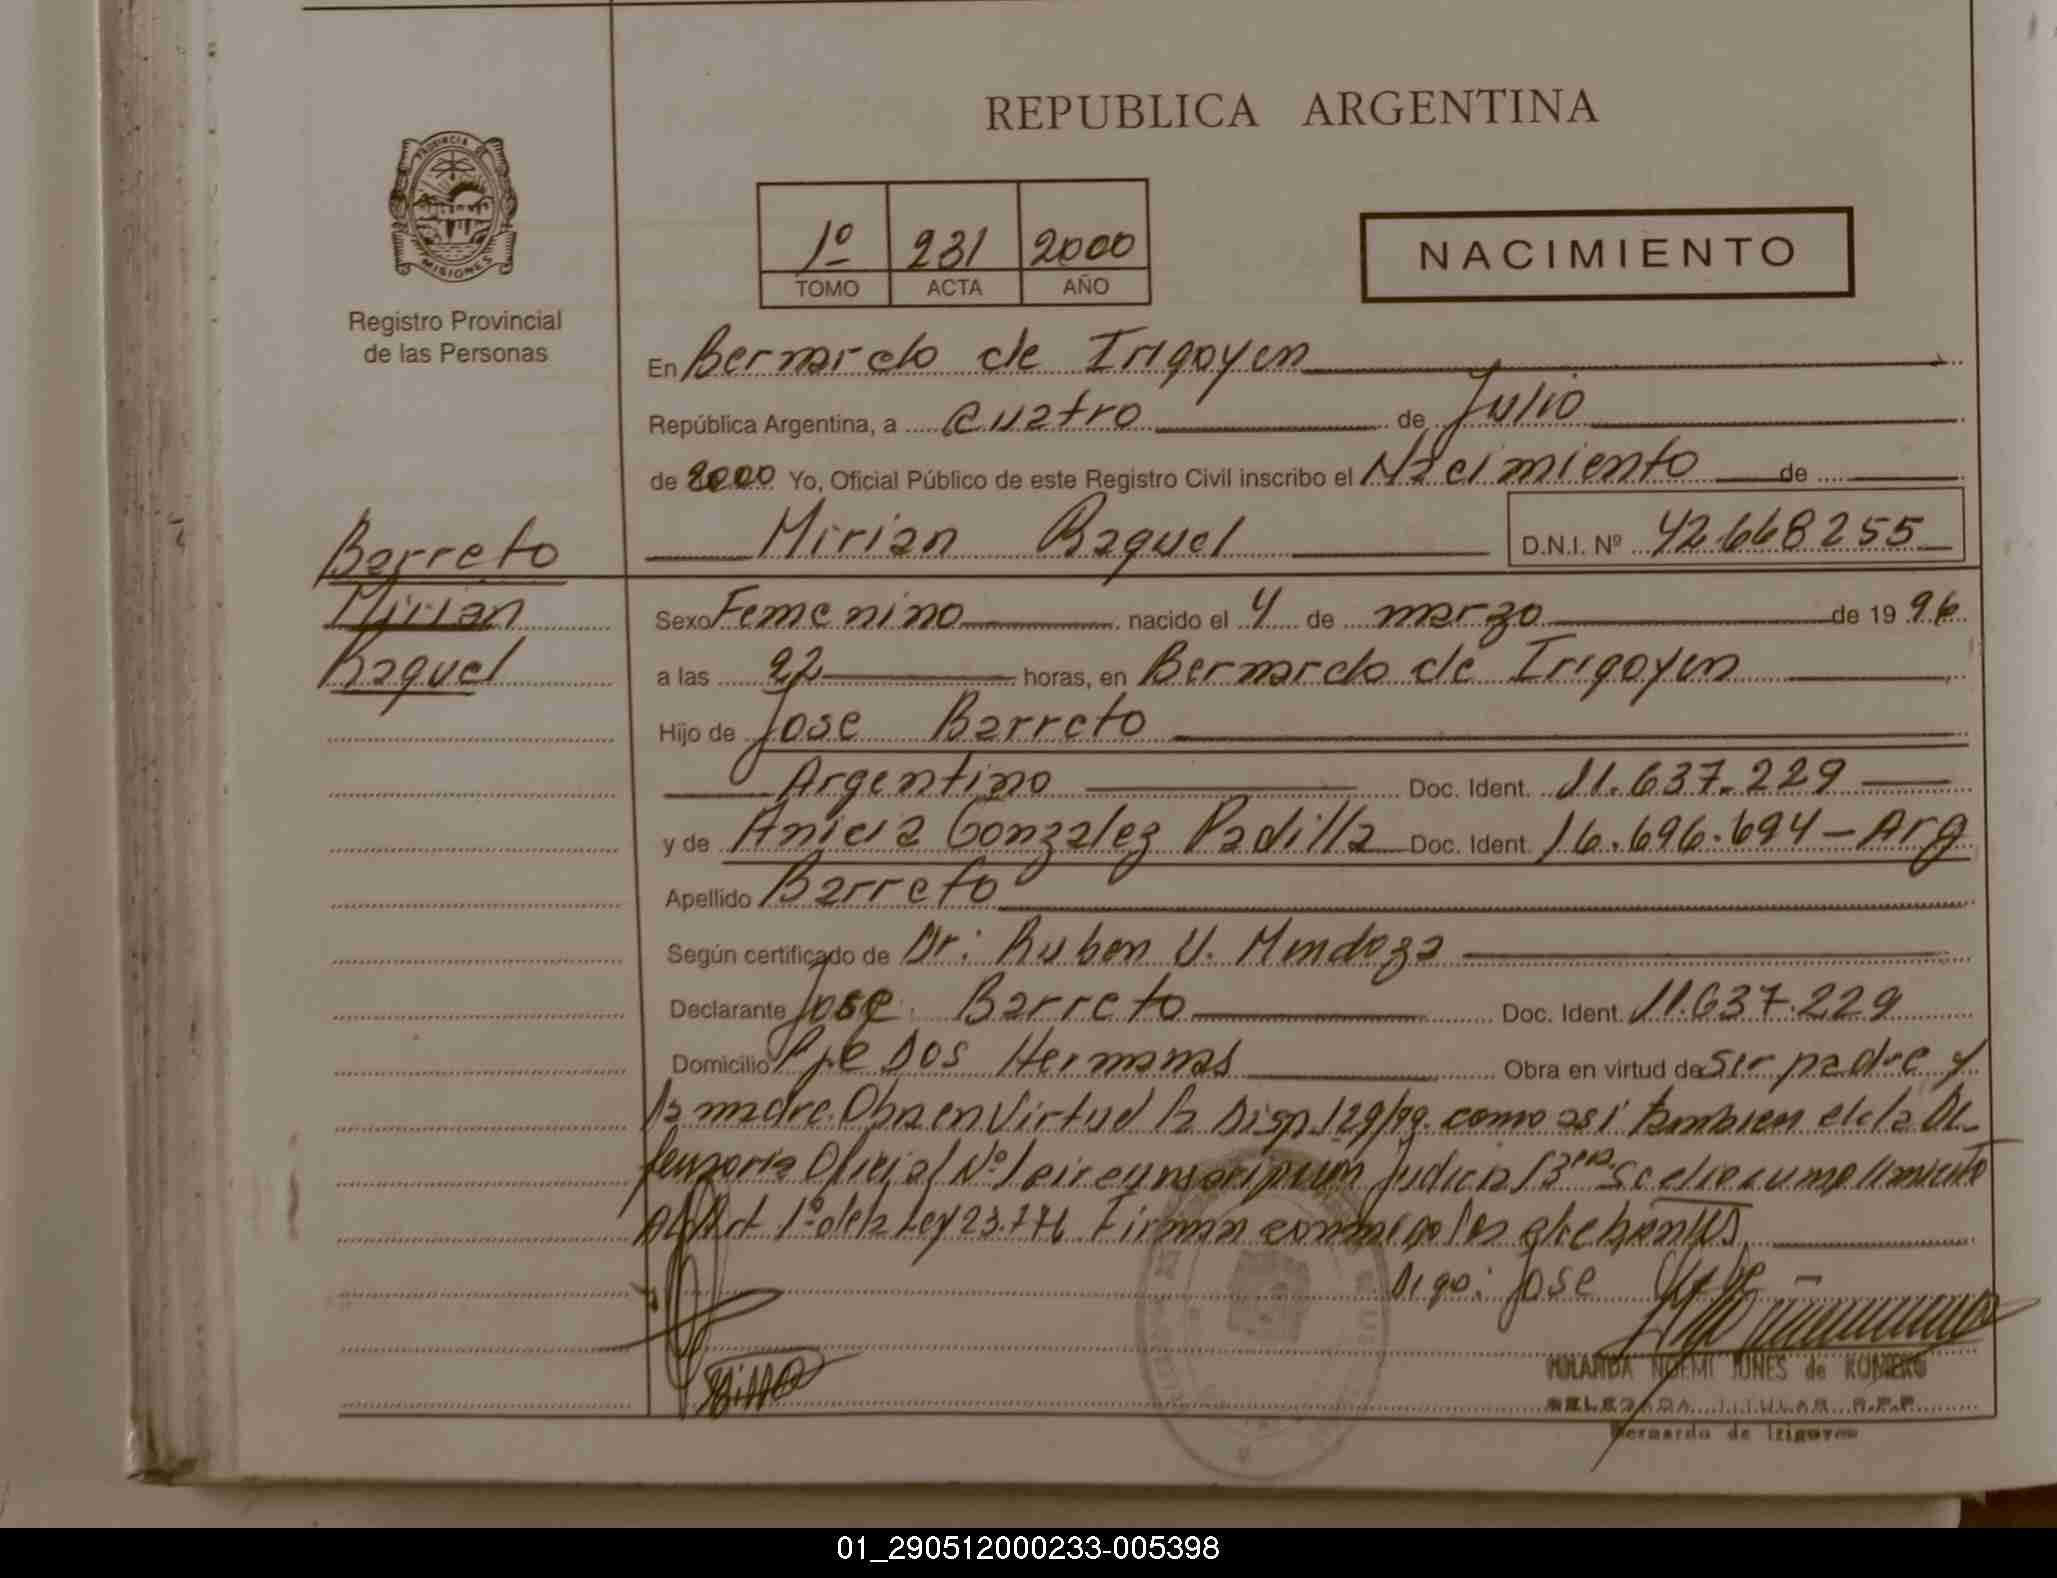 REPUBLICA ARGENTINA
PROVINCIA DE
MISIONES
Registro Provincial
de las Personas
1º 231 2000
TOMO ACTA AÑO
NACIMIENTO
En Bernardo de Irigoyen
República Argentina, a cuatro de Julio
de 2000 Yo, Oficial Público de este Registro Civil inscribo el Nacimiento de
Mirian Raquel D.N.I. Nº 42.668255
Barreto
Mirian
Raquel
Sexo Femenino nacido el 4 de marzo de 1996
a las 22 horas, en Bernardo de Irigoyen
Hijo de Jose Barreto
Argentino Doc. Ident. 11.637.229
y de Anicia Gonzalez Padilla Doc. Ident. 16.696.694 - Arg
Apellido Barreto
Según certificado de Dr: Ruben V. Mendoza
Declarante Jose Barreto Doc. Ident. 11.637.229
Domicilio Pje Dos Hermanas Obra en virtud de ser padre y
la madre. Obra en Virtud la Disp. 129/99. como asi tambien de la De-
fensoria Oficial Nº 1 circunscripcion Judicial 3era. Se dio cumplimiento
Al Art 1º de la Ley 23.776 Firman conmigo los
Digo: Jose
YOLANDA NOEMI JONES de ROMERO
DELEGADA TITULAR R.P.P.
Bernardo de Irigoyen
01_290512000233-005398